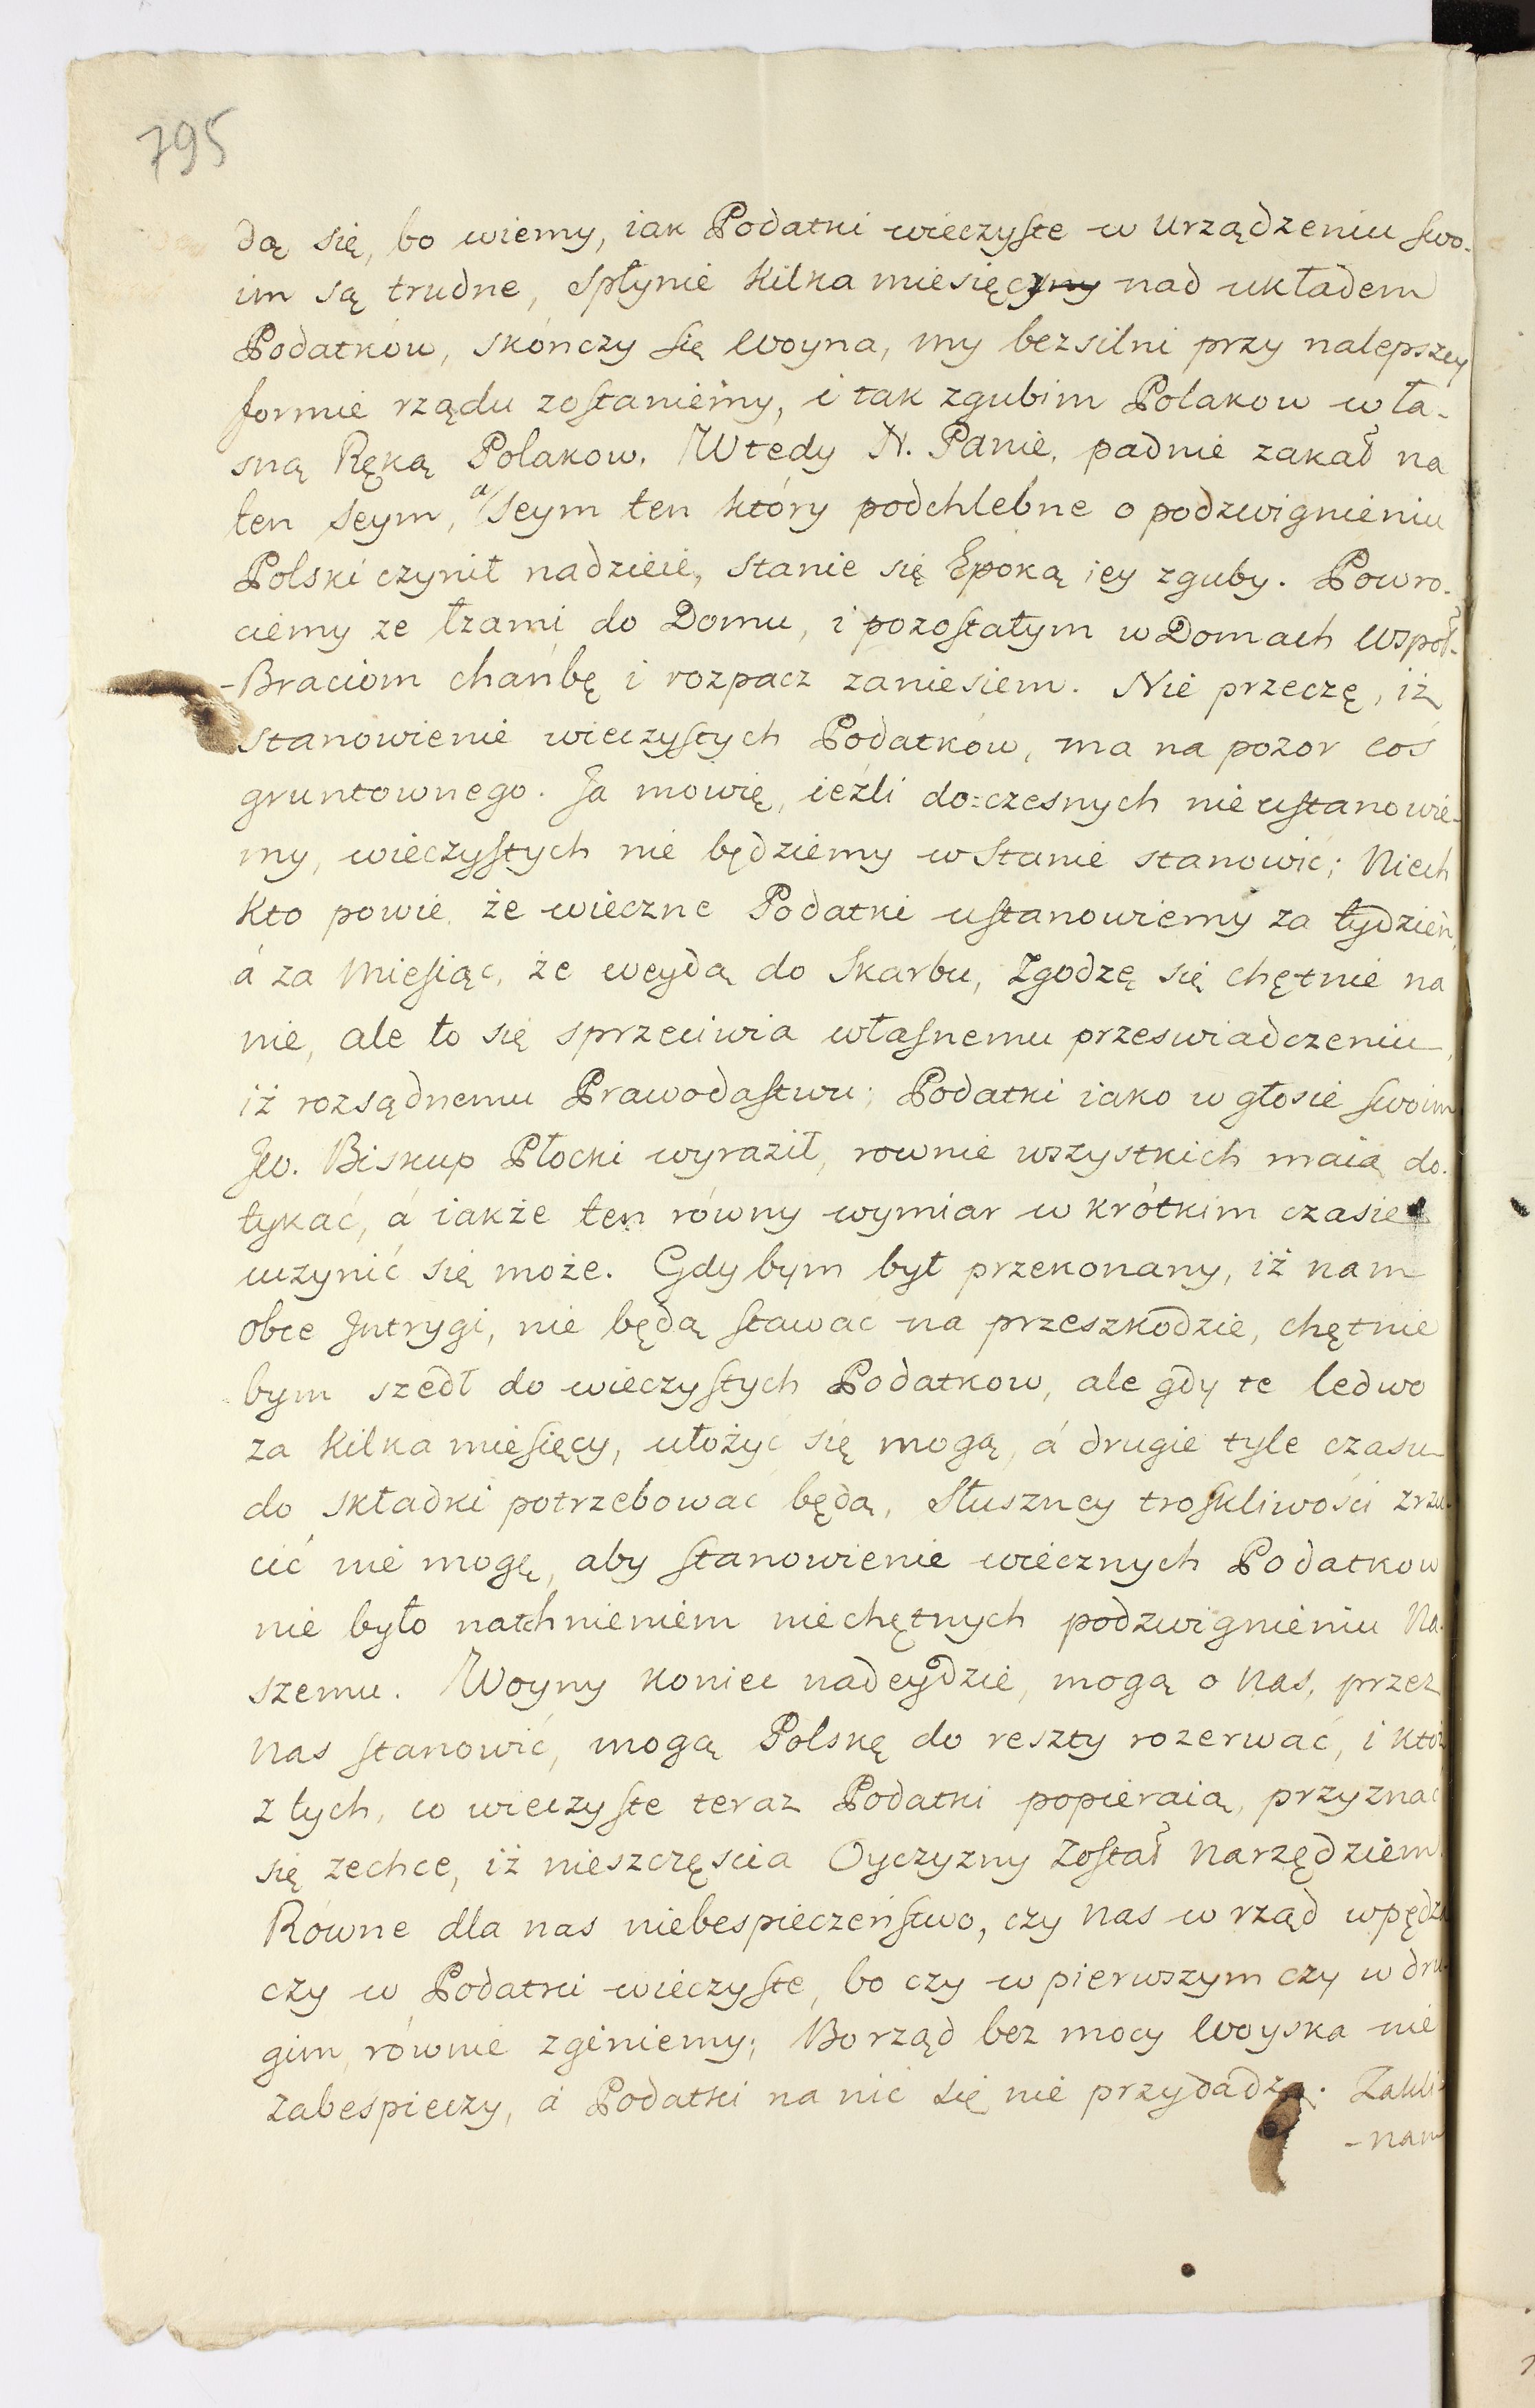 795
dą się, bo wiemy, iak Podatki wieczyste w urządzeniu swo-
im są trudne, spłynie kilka miesięcy nad układem
Podatków, skończy się Woyna, my bezsilni przy nalepszey
formie rządu zostaniemy, i tak zgubim Polakow wła-
sną Ręką Polakow. Wtedy N. Panie, padnie zakał na
ten Seym, a Seym ten który podchlebne o podzwignieniu
Polski czynił nadzieie, stanie się Epoką iey zguby. Powro-
ciemy ze łzami do Domu, i pozostałym w Domach Współ-
-Braciom chańbę i rozpacz zaniesiem. Nie przeczę, iż
stanowienie wieczystych Podatków, ma na pozor coś
gruntownego. Ja mowię, ieźli do=czesnych nie ustanowie-
my, wieczystych nie będziemy w Stanie stanowić; Niech
kto powie, że wieczne Podatki ustanowiemy za tydzień,
á za Miesiąc, że weydą do Skarbu, Zgodzę się chętnie na
nie, ale to się sprzeciwia własnemu przeswiadczeniu,
iż rozsądnemu Prawodastwu; Podatki iako w głosie swoim
Jw. Biskup Płocki wyraził, rownie wszystkich maią do-
tykać, á iakże ten równy wymiar w krótkim czasie
uczynić się może. Gdybym był przekonany, iż nam
obce Intrygi, nie będą stawać na przeszkodzie, chętnie
bym szedł do wieczystych Podatkow, ale gdy te ledwo
za kilka miesięcy, ułożyć się mogą, á drugie tyle czasu
do składki potrzebować będą, Słuszney troskliwości zrzu-
cić nie mogę, aby stanowienie wiecznych Podatkow
nie było natchnieniem niechętnych podzwignieniu Na-
szemu. Woyny koniec nadeydzie, mogą o Nas, przez
Nas stanowić, mogą Polskę do reszty rozerwać, i któż
z tych, co wieczyste teraz Podatki popieraią, przyznać
się zechce, iż nieszczęscia Oyczyzny Został Narzędziem.
Równe dla nas niebespieczeństwo, czy Nas w rząd wpędzą
czy w Podatki wieczyste, bo czy w pierwszym czy w dru-
gim, równie zginiemy; Bo rząd bez mocy Woyska nie
zabespieczy, á Podatki na nic się nie przydadzą. Zakli-
-nam